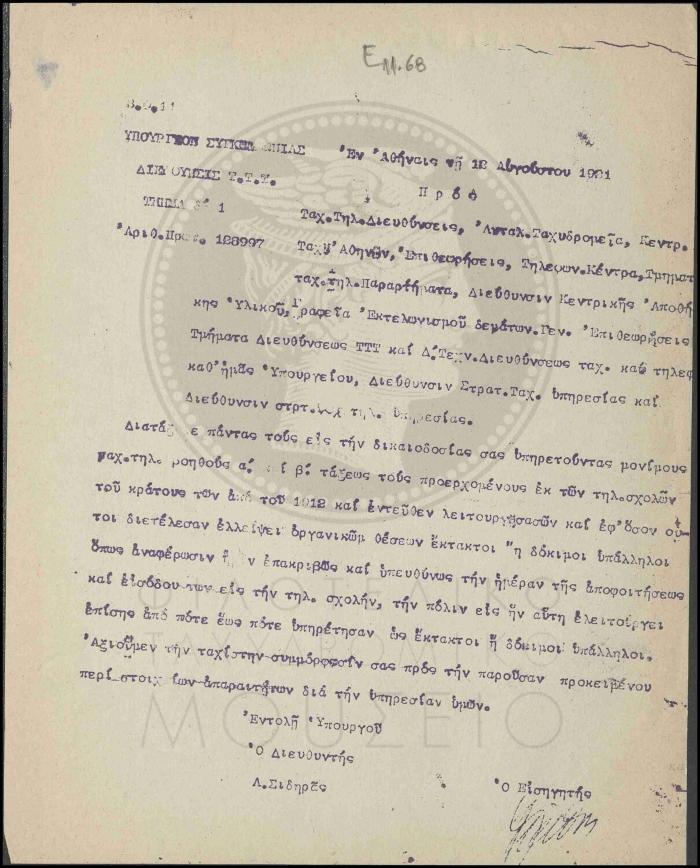 Ε 11.68
ΥΠΟΥΡΓΕΙΟΝ ΣΥΓΚΟΙΝΩΝΙΑΣ
Ἐν Ἀθήναις τῇ 12 Αὐγούστου 1921
ΔΙΕΥΘΥΝΣΙΣ Τ.Τ.Τ.
Πρὸς
ΤΜΗΜΑ 1
Ταχ.Τηλ.Διευθύνσεις, Ἀνταλ.Ταχυδρομεῖα, Κεντρ.
Ἀριθ.Πρωτ. 128997
Ταχ Ἀθηνῶν, Ἐπιθεωρήσεις, Τηλεφων.Κέντρα, Τμηματ
ταχ.τηλ.Παραρτήματα, Διεύθυνσιν Κεντρικῆς Ἀποθή
κης Ὑλικοῦ, Γραφεῖα Ἐκτελωνισμοῦ δεμάτων.Γεν. Ἐπιθεωρήσεις
Τμήματα Διευθύνσεως ΤΤΤ καί Δ.Τεχν.Διευθύνσεως ταχ. καί τηλεφ
καθ'ἡμᾶς Ὑπουργείου, Διεύθυνσιν Στρατ.Ταχ. ὑπηρεσίας καί
Διεύθυνσιν στρτ. τηλ. ὑπηρεσίας.
πάντας τούς εἰς τήν δικαιοδοσίας σας ὑπηρετοῦντας μονίμους
ταχ.τηλ. βοηθούς α΄. καί β΄. τάξεως τούς προερχομένους ἐκ τῶν τηλ.σχολῶν
τοῦ κράτους τῶν ἀπό τοῦ 1912 καί ἐντεῦθεν λειτουργησασῶν καί ἐφ'ὅσον οὗ-
τοι διετέλεσαν ἐλλείψει ὀργανικῶν θέσεων ἔκτακτοι ἤ δόκιμοι ὑπάλληλοι
ὅπως ἀναφέρωσιν ἐπακριβῶς καί ὑπευθύνως τήν ἡμέραν τῆς ἀποφοιτήσεως
καί εἰσόδου των εἰς τήν τηλ. σχολήν, τήν πόλιν εἰς ἥν αὕτη ἐλειτούργει
ἐπίσης ἀπό πότε ἕως πότε ὑπηρέτησαν ὡς ἔκτακτοι ἤ δόκιμοι ὑπάλληλοι.
Ἀξιοῦμεν τήν ταχίστην συμμόρφωσίν σας πρός τήν παροῦσαν προκειμένου
περί στοιχείων ἀπαραιτήτων διά τήν ὑπηρεσίαν ὑμῶν.
Ἐντολῇ Ὑπουργοῦ
Ὁ Διευθυντής
Λ.Σιδηρᾶς
Ὁ Εἰσηγητής
ΦΙΛΟΤΕΛΙΚΟ
ΤΑΧΥΔΡΟΜΙΚΟ
ΜΟΥΣΕΙΟ